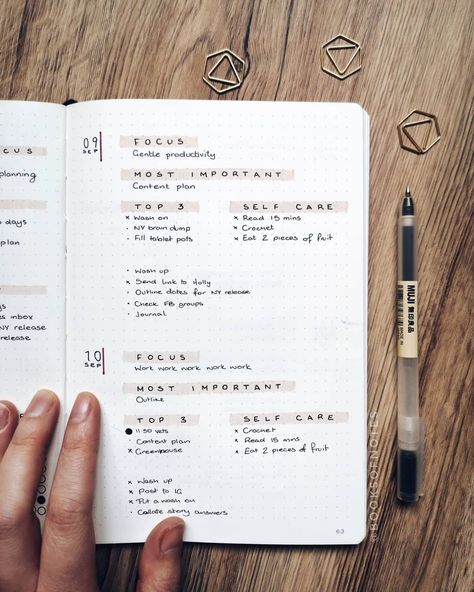 CUS
planning
days
plan
es inbox
NY release
release
09
SEP
FOCUS
Gentle productivity
MOST IMPORTANT
Content plan
TOP 3
× Wash on
· NY brain dump
· Fill tablet pots
SELF CARE
× Read 15 mins
× Crochet
× Eat 2 pieces of fruit
· Wash up
× Send link to Holly
· Outline dates for NY release
· Check FB groups
· Journal
10
SEP
FOCUS
Work work work work work
MOST IMPORTANT
Outline
TOP 3
● 11:50 vets
· Content plan
× Greenhouse
SELF CARE
× Crochet
× Read 15 mins
× Eat 2 pieces of fruit
× Wash up
× Post to IG
× Put a wash on
· Collate story answers
63
MUJI 無印良品
@BOOKSOFNOTES